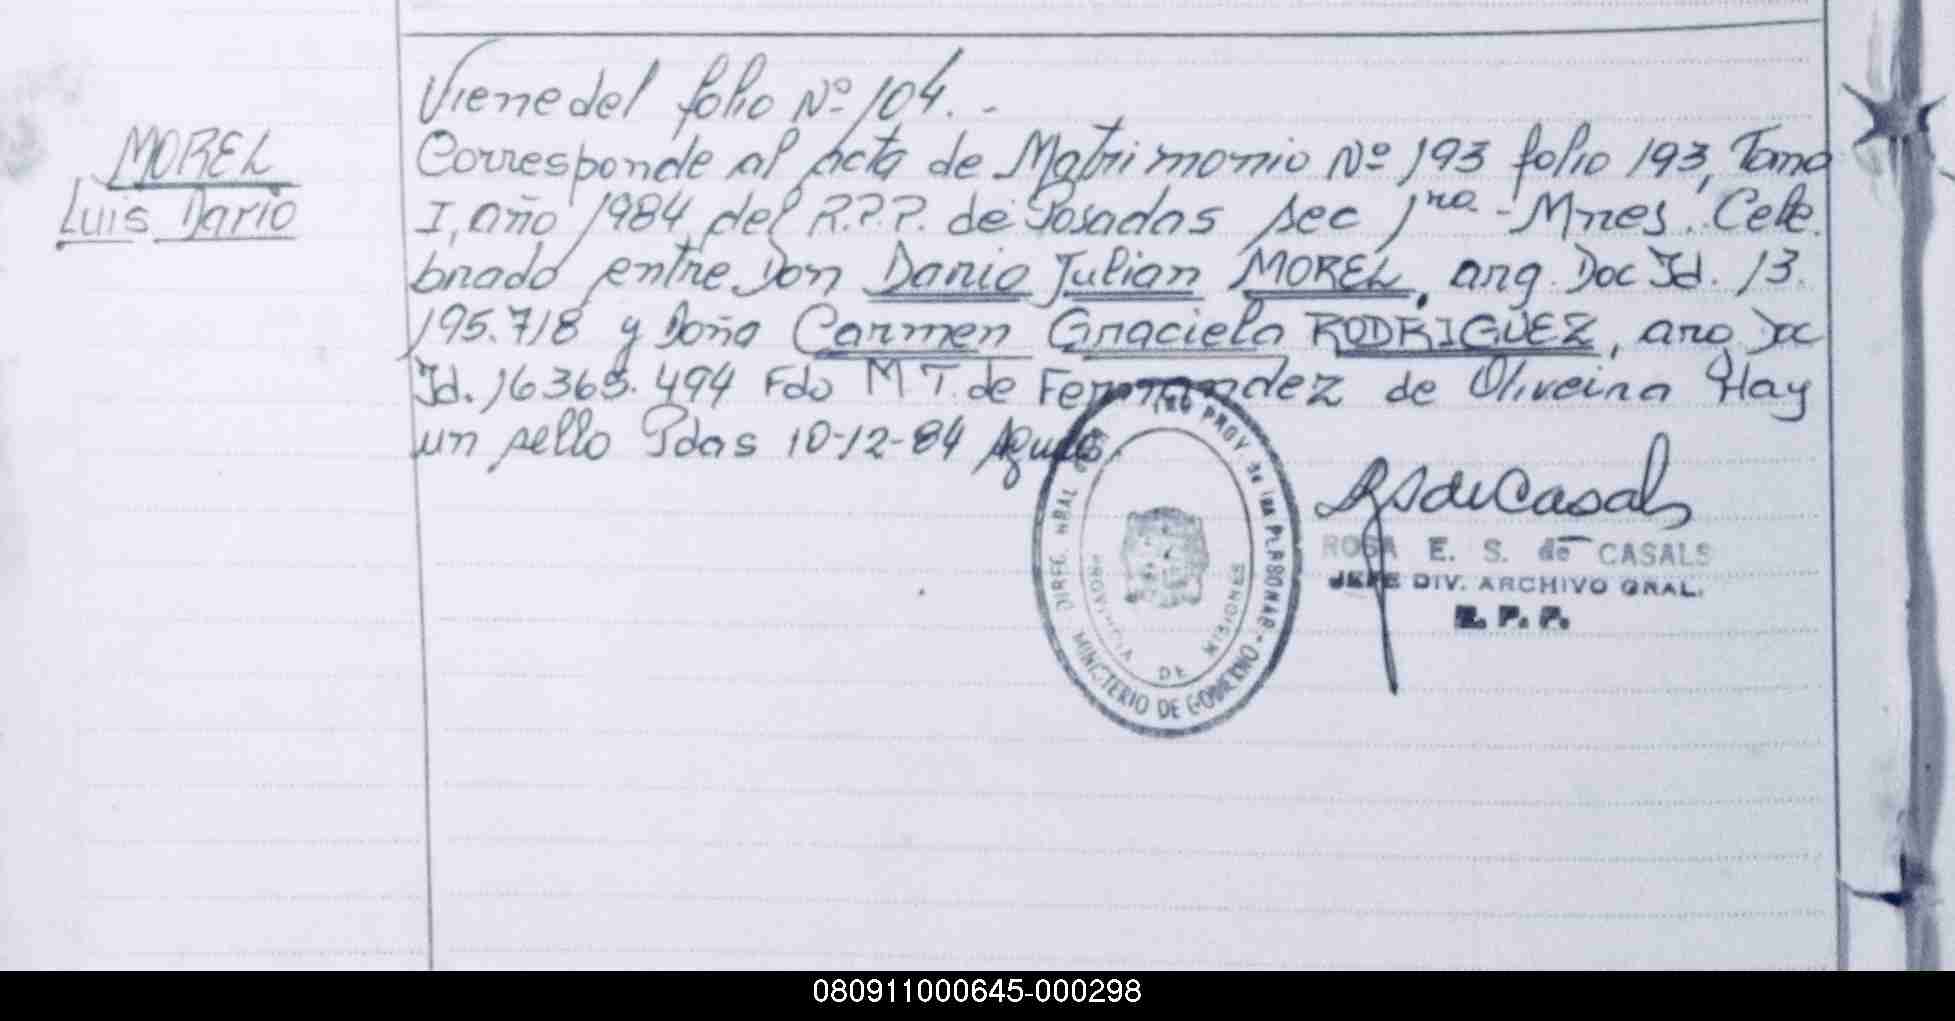 MOREL
Luis Dario
Viene del folio Nº 104.-
Corresponde al acta de Matrimonio Nº 193 folio 193, Tomo
I, año 1984 del R.P.P. de Posadas sec 1ra - Mnes. Cele
brado entre Don Dario Julian MOREL, arg. Doc Id. 13.
195.718 y Doña Carmen Graciela RODRIGUEZ, arg Doc
Id. 16 365.494 Fdo M T. de Fernandez de Oliveira Hay
un sello Pdas 10-12-84
PROV. de las PERSONAS - MINISTERIO DE GOBIERNO
PROVINCIA DE MISIONES
ROSA E. S. de CASALS
JEFE DIV. ARCHIVO GRAL.
R. P. P.
080911000645-000298